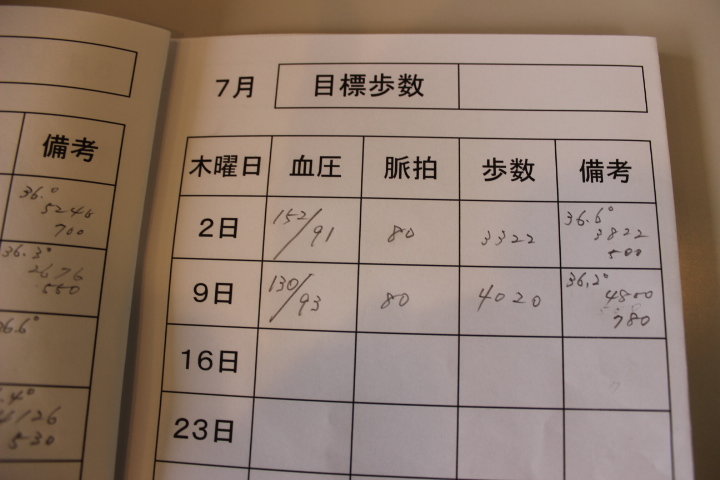 備考
36.0°
5246
700
36.3°
2676
550
36.6°
4126
530
7月 目標歩数
木曜日 血圧 脈拍 歩数 備考
2日 152/91 80 3322 36.6°
3822
500
9日 130/93 80 4020 36.2°
4800
780
16日
23日